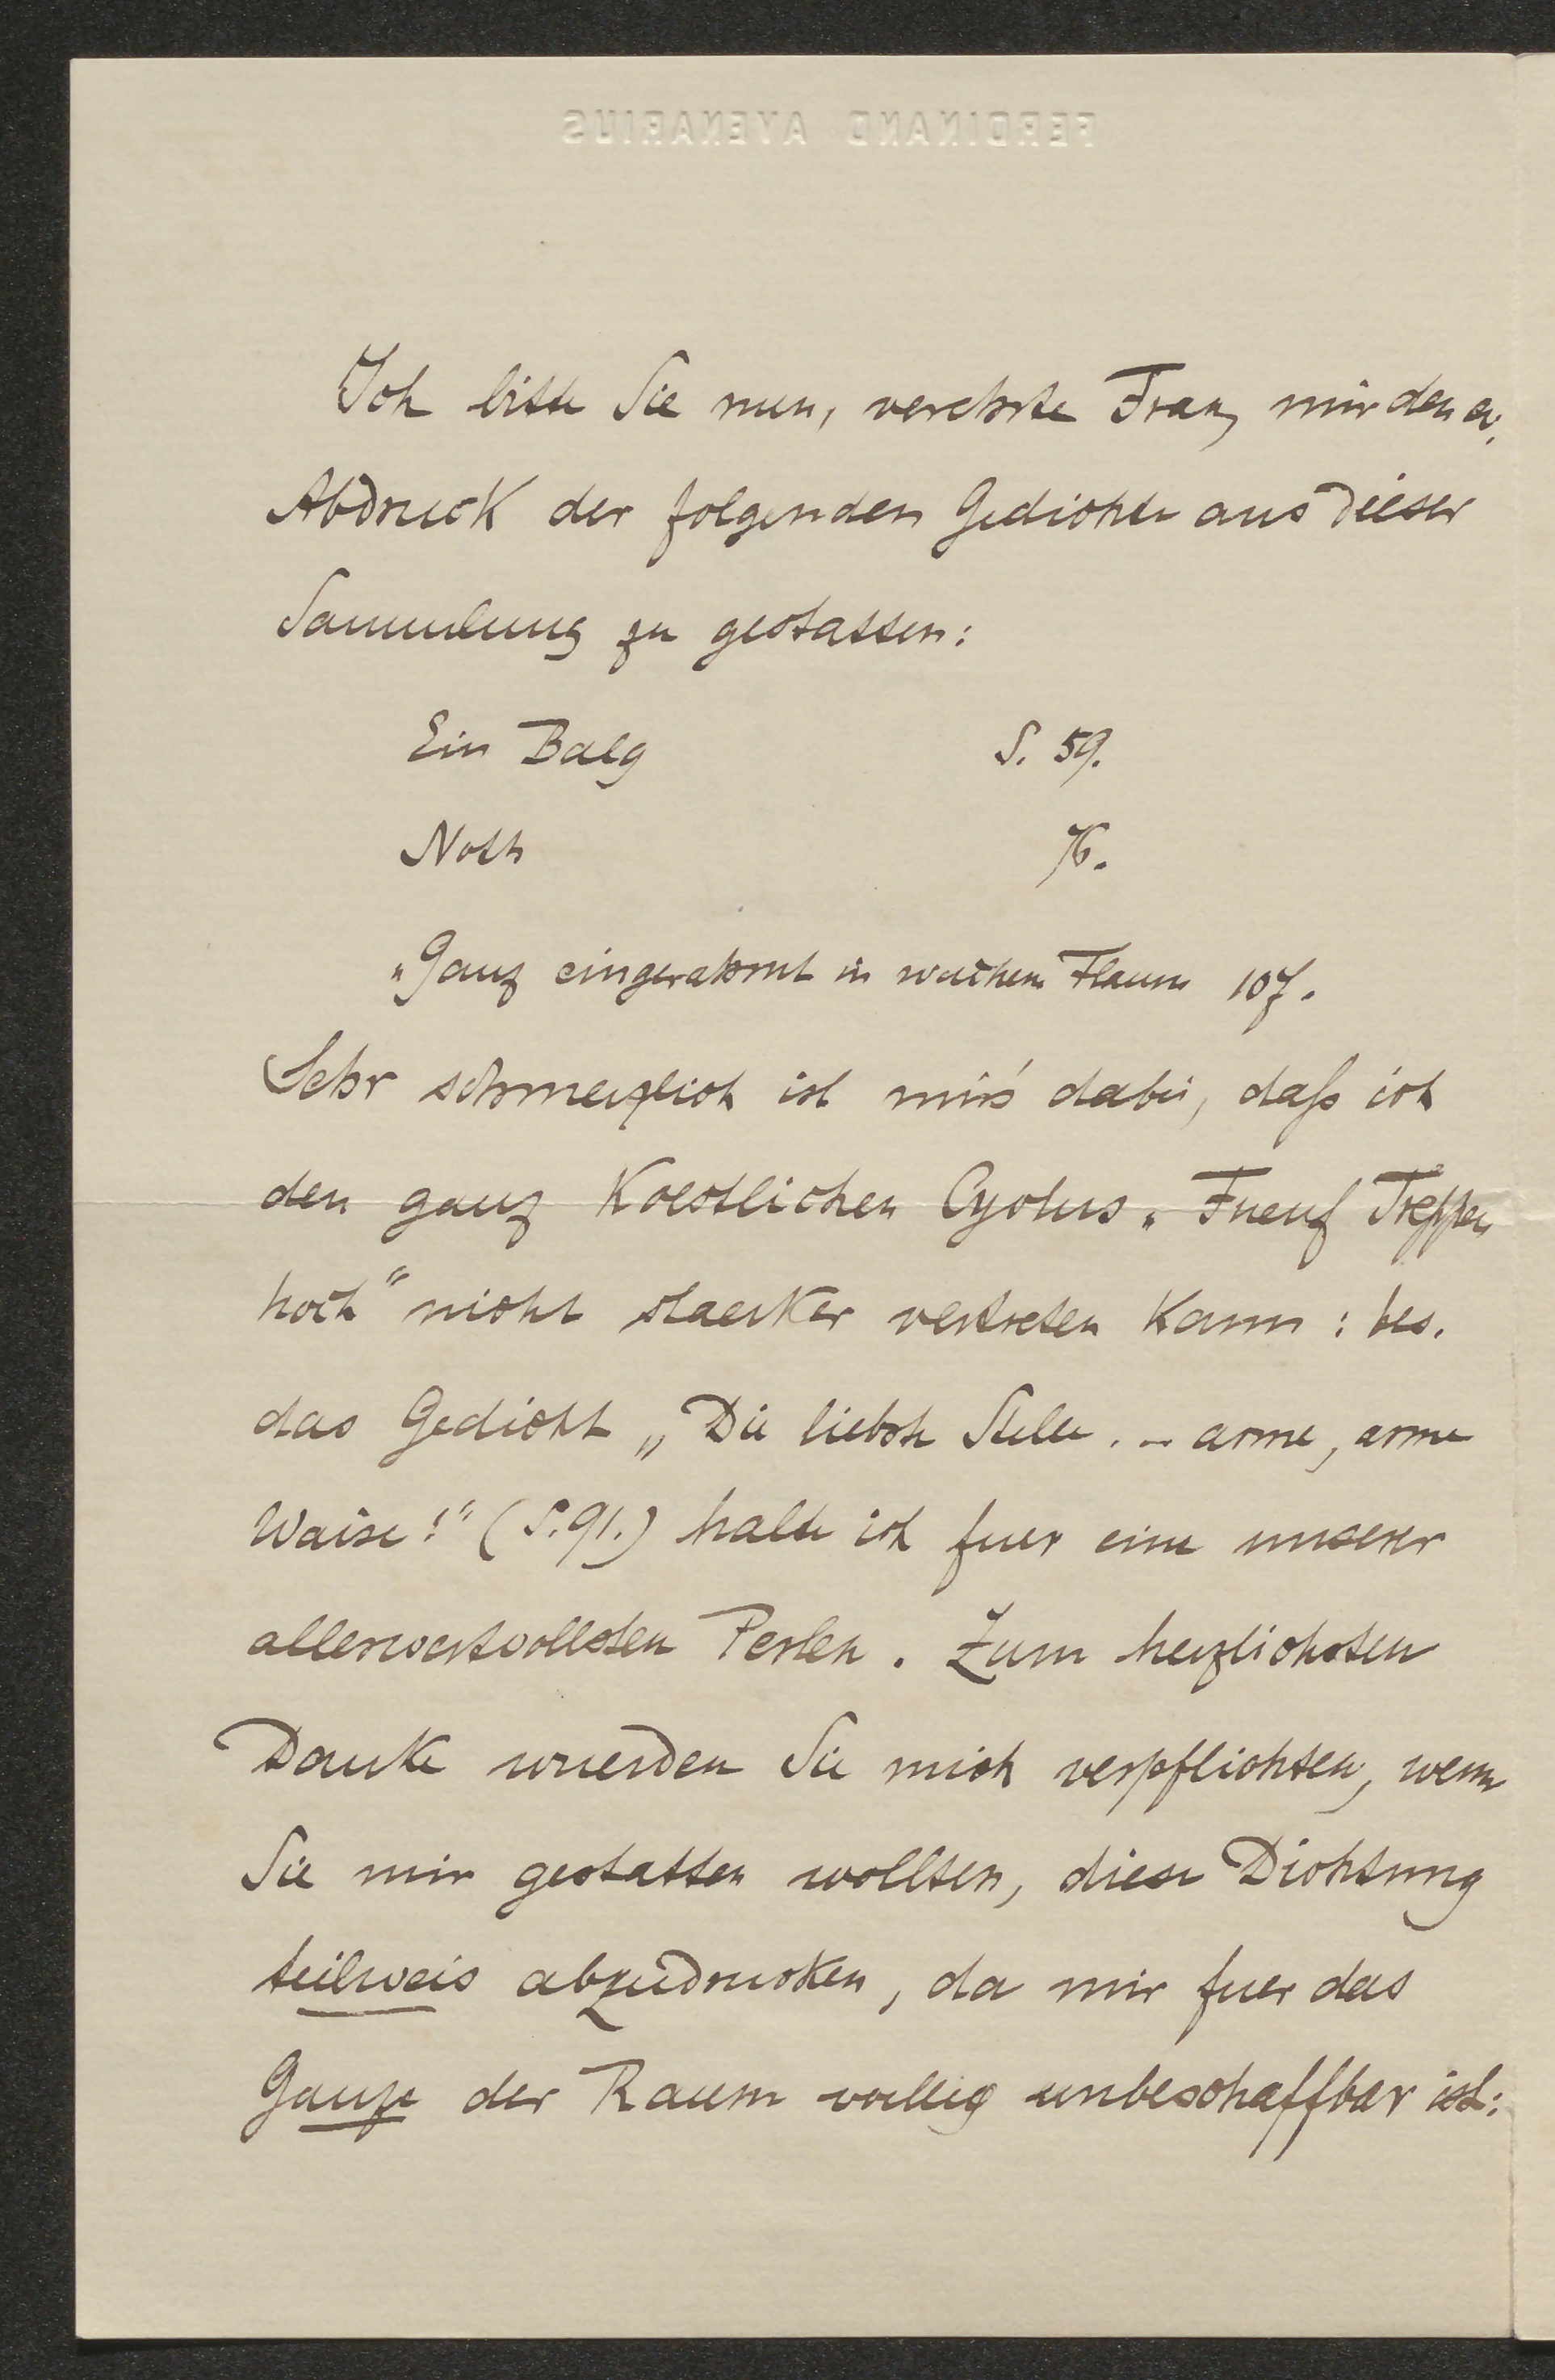 FERDINAND AVENARIUS
Ich bitte Sie nun, verehrte Frau, mir den
Abdruck der folgenden Gedichte aus dieser
Sammlung zu gestatten:
Ein Balg S. 59.
Noth 76.
„Ganz eingerahmt in weichem Flaum 107.
Sehr schmerzlich ist mir's dabei, daß ich
den ganz koestlichen Cyclus „Fuenf Treppen
hoch" nicht staerker vertreten kann: bes.
das Gedicht „Die liebste Stelle. – arme, arme
Waise!" (S.91.) halte ich fuer eine unserer
allerwertvollsten Perlen. Zum herzlichsten
Danke wuerden Sie mich verpflichten, wenn
Sie mir gestatten wollten, diese Dichtung
teilweis abzudrucken, da mir fuer das
Ganze der Raum voellig unbeschaffbar ist: